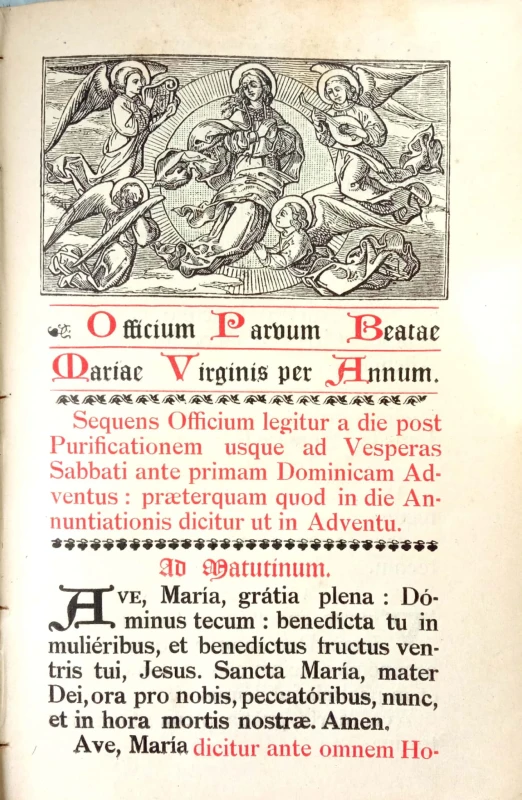 Officium Parvum Beatae
Mariae Virginis per Annum.
Sequens Officium legitur a die post
Purificationem usque ad Vesperas
Sabbati ante primam Dominicam Ad-
ventus : præterquam quod in die An-
nuntiationis dicitur ut in Adventu.
Ad Matutinum.
AVE, María, grátia plena : Dó-
minus tecum : benedícta tu in
muliéribus, et benedíctus fructus ven-
tris tui, Jesus. Sancta María, mater
Dei, ora pro nobis, peccatóribus, nunc,
et in hora mortis nostræ. Amen.
Ave, María dicitur ante omnem Ho-